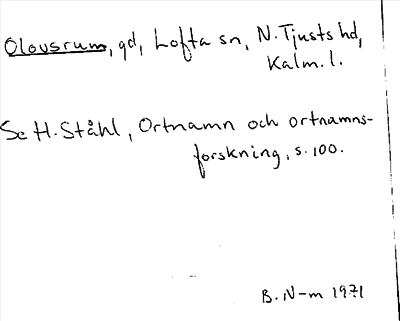 Olovsrum, gd, Lofta sn, N. Tjusts hd,
Kalm. l.
Se H. Ståhl, Ortnamn och ortnamns-
forskning, s. 100.
B. N-m 1971